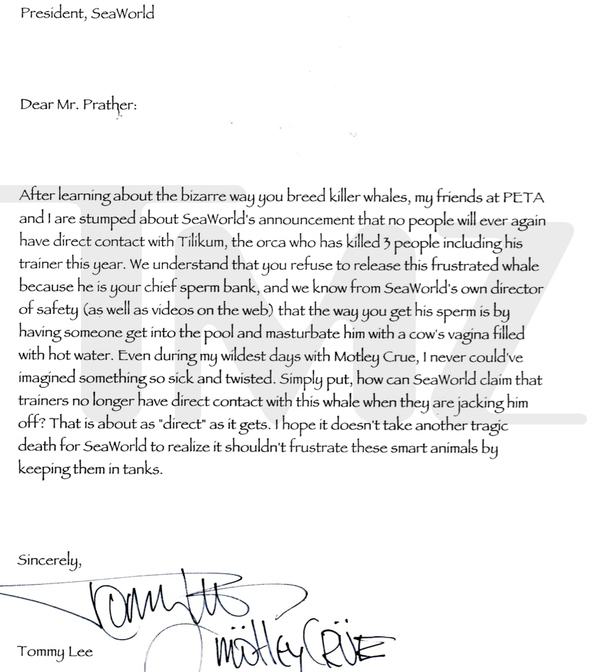 President, SeaWorld
Dear Mr. Prather:
After learning about the bizarre way you breed killer whales, my friends at PETA
and I are stumped about SeaWorld's announcement that no people will ever again
have direct contact with Tilikum, the orca who has killed 3 people including his
trainer this year. We understand that you refuse to release this frustrated whale
because he is your chief sperm bank, and we know from SeaWorld's own director
of safety (as well as videos on the web) that the way you get his sperm is by
having someone get into the pool and masturbate him with a cow's vagina filled
with hot water. Even during my wildest days with Motley Crue, I never could've
imagined something so sick and twisted. Simply put, how can SeaWorld claim that
trainers no longer have direct contact with this whale when they are jacking him
off? That is about as "direct" as it gets. I hope it doesn't take another tragic
death for SeaWorld to realize it shouldn't frustrate these smart animals by
keeping them in tanks.
TMZ
Sincerely,
Tommy Lee
mötley CRÜE
Tommy Lee